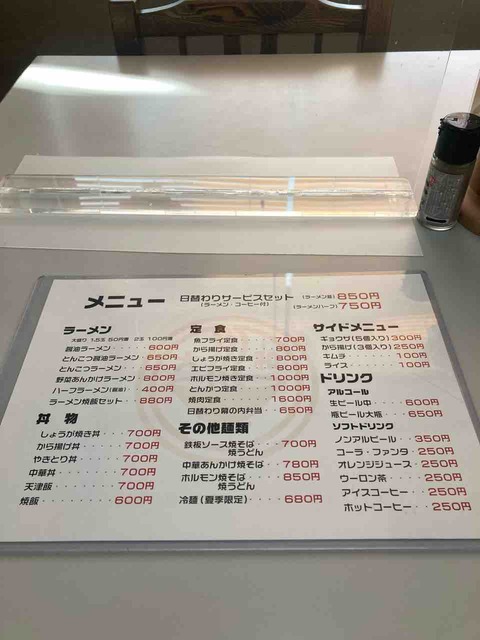 メニュー
日替わりサービスセット (ラーメン並) 850円
(ラーメン・コーヒー付) (ラーメンハーフ) 750円
ラーメン
大盛り 1.5玉 50円増 2玉 100円増
醤油ラーメン・・・・・600円
とんこつ醤油ラーメン・650円
とんこつラーメン・・・650円
野菜あんかけラーメン・800円
ハーフラーメン(醤油)・400円
ラーメン焼飯セット・・880円
丼物
しょうが焼き丼・・・700円
から揚げ丼・・・・・700円
やきとり丼・・・・・700円
中華丼・・・・・・・700円
天津飯・・・・・・・700円
焼飯・・・・・・・・600円
定食
魚フライ定食・・・・700円
から揚げ定食・・・・800円
しょうが焼き定食・・800円
エビフライ定食・・・800円
ホルモン焼き定食・・1000円
とんかつ定食・・・・1000円
焼肉定食・・・・・・1600円
日替わり幕の内弁当・・650円
その他麺類
鉄板ソース焼そば・・・700円
焼うどん
中華あんかけ焼そば・・780円
ホルモン焼そば・・・・850円
焼うどん
冷麺(夏季限定)・・・・680円
サイドメニュー
ギョウザ(5個入り) 300円
から揚げ(3個入り) 250円
キムチ 100円
ライス・・・・・・100円
ドリンク
アルコール
生ビール中・・・・500円
瓶ビール大瓶・・・650円
ソフトドリンク
ノンアルビール・・350円
コーラ・ファンタ・250円
オレンジジュース・250円
ウーロン茶・・・・250円
アイスコーヒー・・250円
ホットコーヒー・・250円